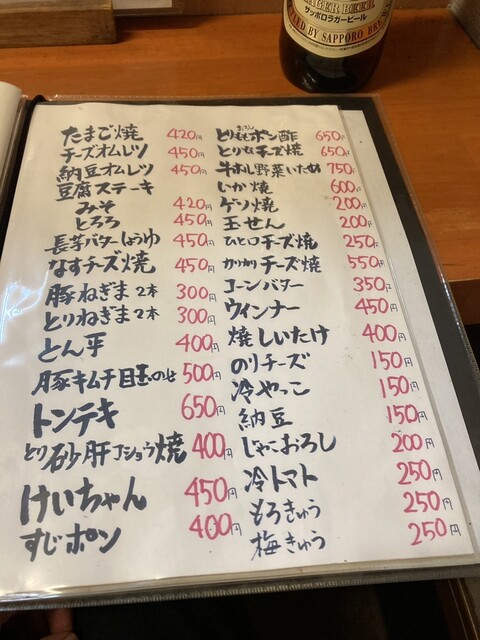 LAGER BEER
サッポロラガービール
BY SAPPORO
たまご焼 420円
チーズオムレツ 450円
納豆オムレツ 450円
豆腐ステーキ
みそ 420円
とろろ 450円
長芋バターしょうゆ 450円
なすチーズ焼 450円
豚ねぎま2本 300円
とりねぎま2本 300円
とん平 400円
豚キムチ目玉のせ 500円
トンテキ 650円
とり砂肝コショウ焼 400円
けいちゃん 450円
すじポン 400円
とりももポン酢 650円
チーズ焼 650円
牛ホル野菜いため 750円
いか焼 600円
ゲソ焼 200円
玉せん 200円
ひとロチーズ焼 250円
かりかりチーズ焼 550円
コーンバター 350円
ウィンナー 450円
焼しいたけ 400円
のりチーズ 150円
冷やっこ 150円
納豆 150円
じゃこおろし 200円
冷トマト 250円
もろきゅう 250円
梅きゅう 250円